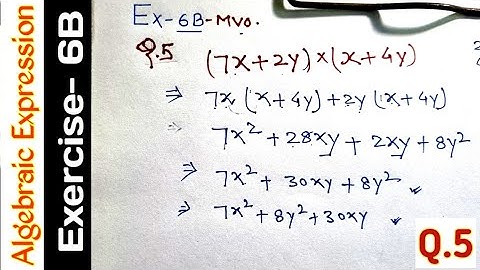 Algebraic Expression
Exercise- 6B
Ex-6B-MVO.
Q.5 (7x+2y)×(x+4y)
⇒ 7x(x+4y)+2y(x+4y)
⇒ 7x²+28xy+2xy+8y²
⇒ 7x²+30xy+8y²
⇒ 7x²+8y²+30xy
Q.5